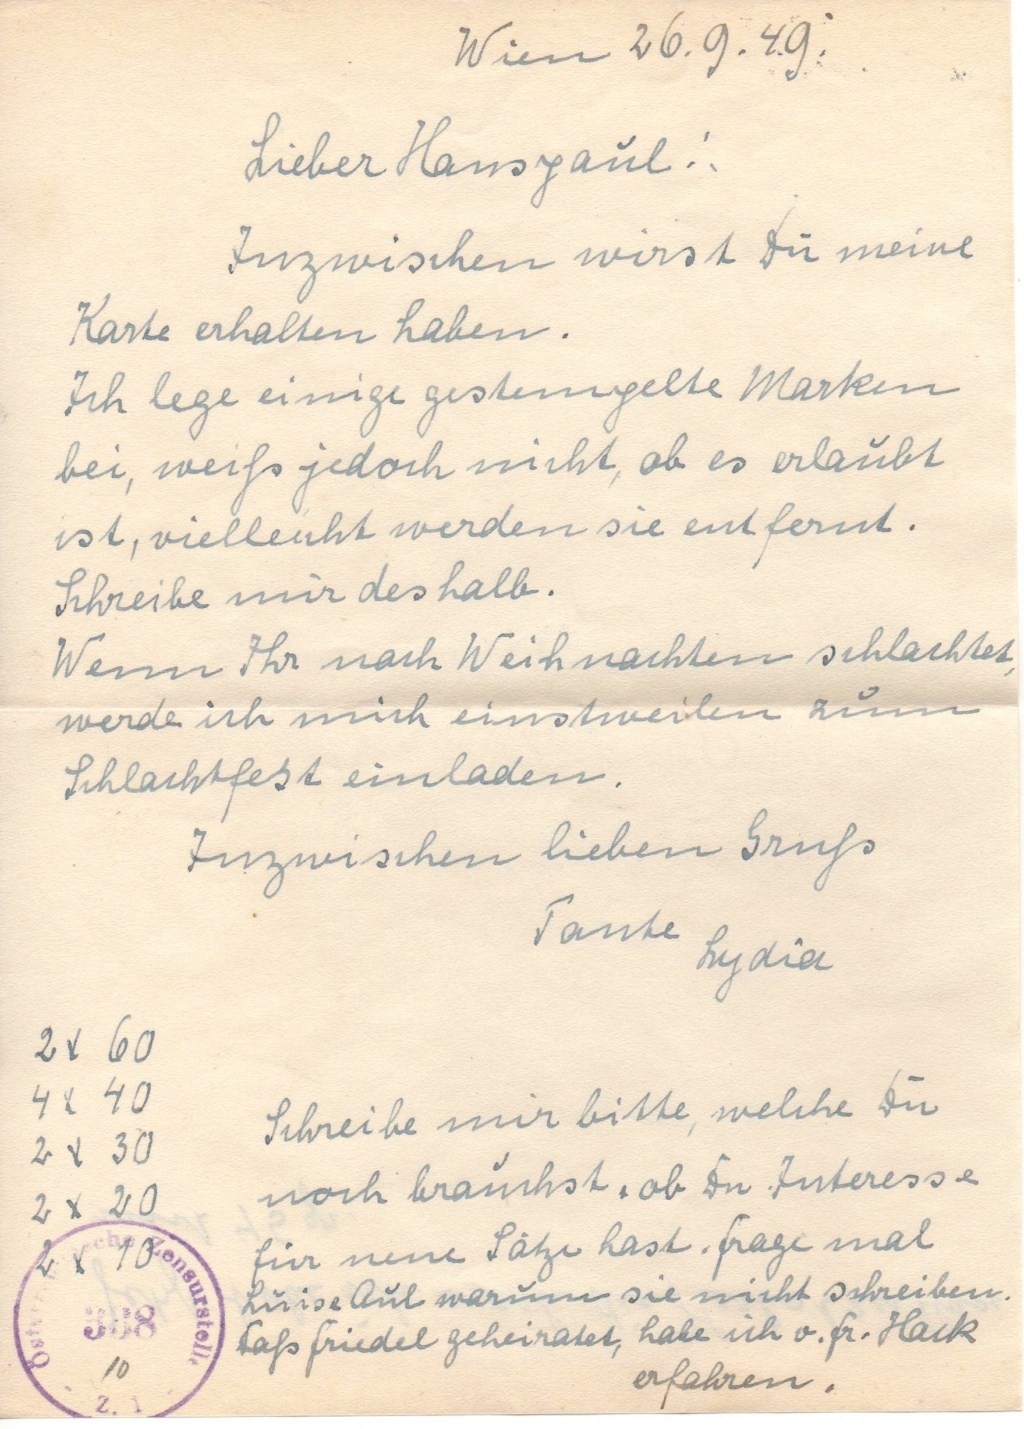 Wien 26.9.49.
Lieber Hanspaul!
Inzwischen wirst Du meine
Karte erhalten haben.
Ich lege einige gestempelte Marken
bei, weiss jedoch nicht, ob es erlaubt
ist, vielleicht werden sie entfernt.
Schreibe mir deshalb.
Wenn Ihr nach Weihnachten schlachtet,
werde ich mich einstweilen zum
Schlachtfest einladen.
Inzwischen lieben Gruss
Tante
Lydia
2 x 60
4 x 40
2 x 30
2 x 20
2 x 10
Schreibe mir bitte, welche Du
noch brauchst, ob Du Interesse
für neue Sätze hast. frage mal
Luise Aul warum sie nicht schreiben.
Dass Friedel geheiratet, habe ich v. Fr. Hack
erfahren.
Österreichische Zensurstelle
358
10
Z. 1